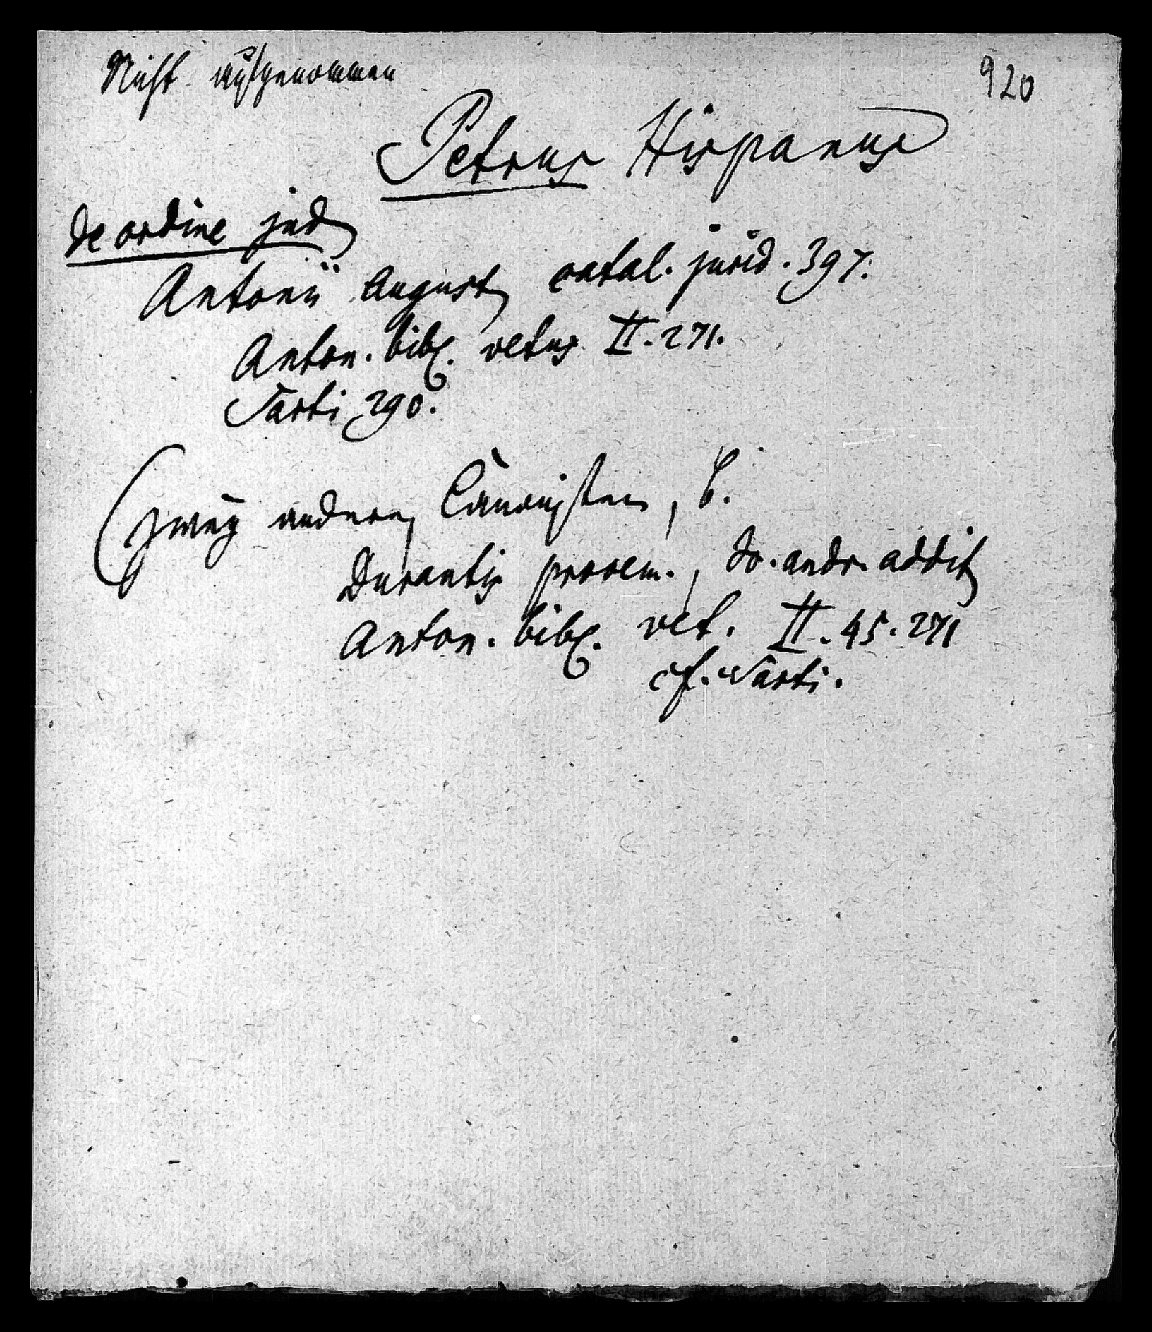 Nicht aufgenommen
920
Petrus Hispanus
de ordine jud
Antonii August catal. jurid. 397.
Anton. bibl. vetus II. 271.
Sarti 290.
(zwey andere Canonisten, b.
Durantis prooem., Jo. andr. addit
Anton. bibl. vet. II. 45. 271
cf. Sarti.